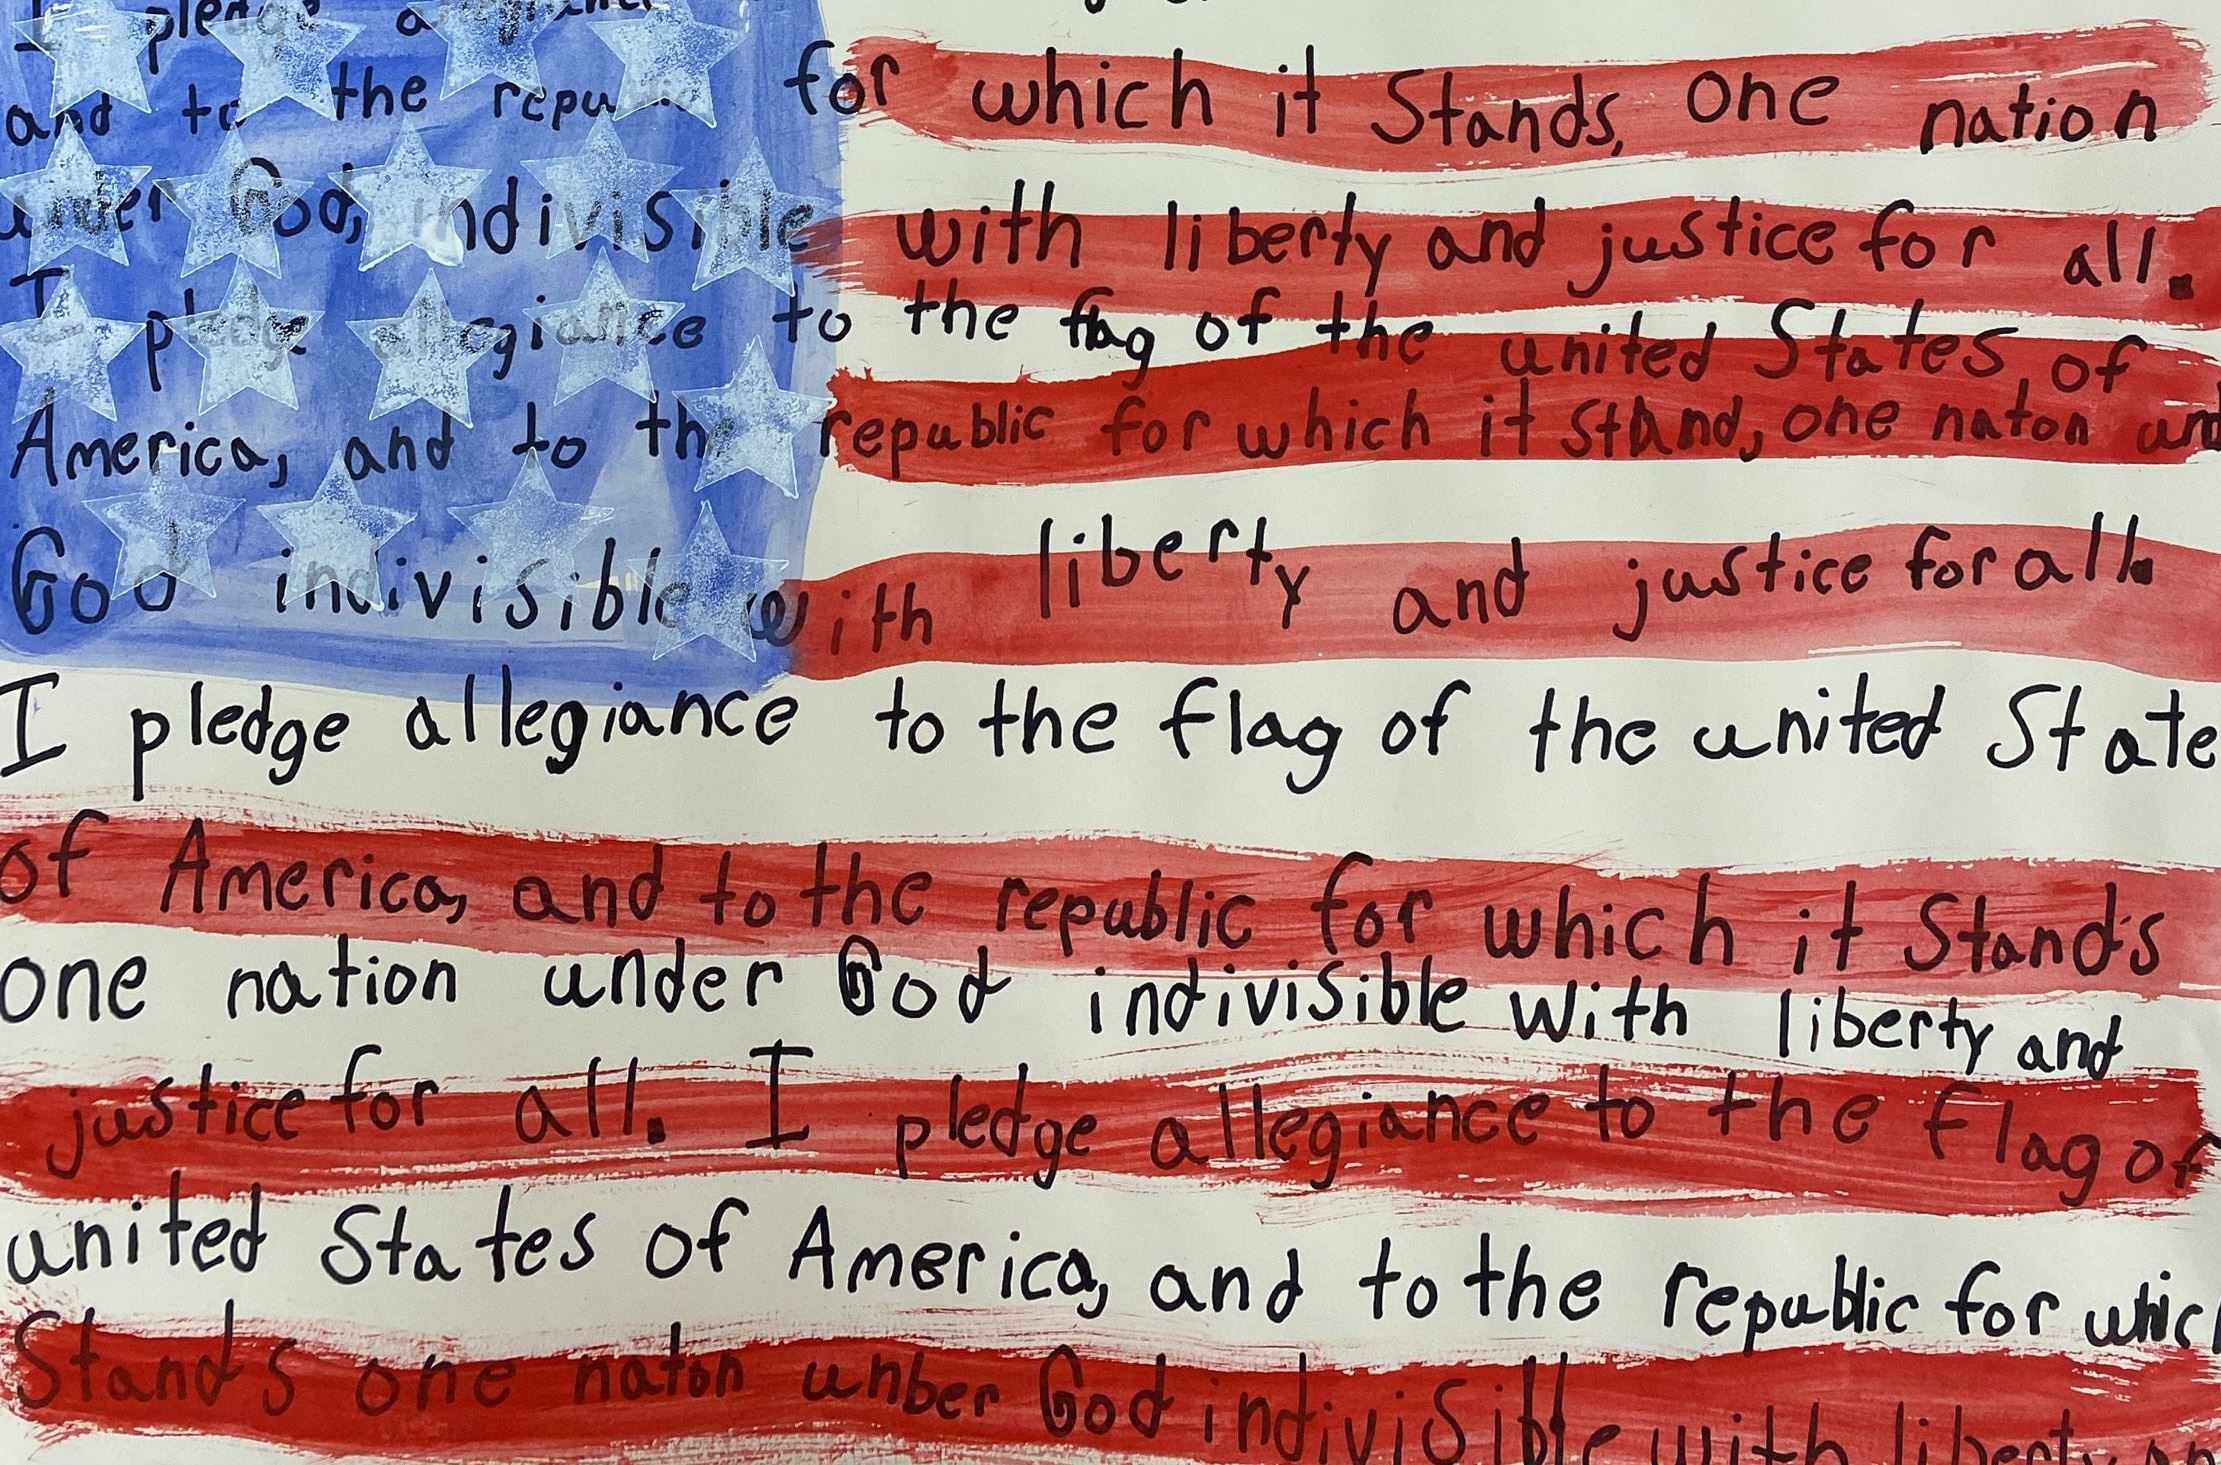 I pledge
and to the for which it Stands, one nation
under God, indivisible with liberty and justice for all.
I pledge allegiance to the flag of the united States, of
America, and to the republic for which it stand, one naton und
God indivisible with liberty and justice for all.
I pledge allegiance to the flag of the united State
of America, and to the republic for which it Stands
one nation under God indivisible with liberty and
justice for all. I pledge allegiance to the flag of
united States of America, and to the republic for whic
Stands one naton unber God indivisible with liberty